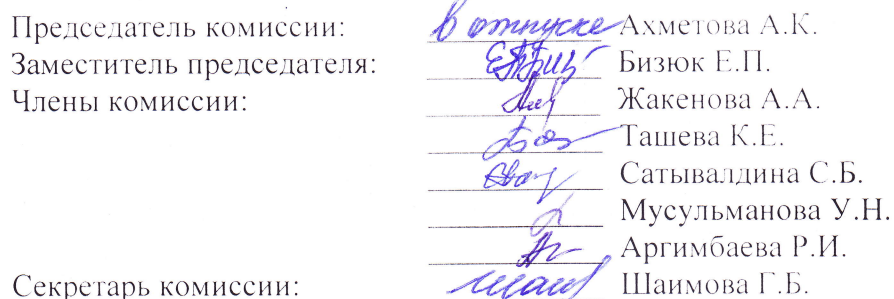 Председатель комиссии: в отпуске Ахметова А.К.
Заместитель председателя: Бизюк Е.П.
Члены комиссии: Жакенова А.А.
Ташева К.Е.
Сатывалдина С.Б.
Мусульманова У.Н.
Аргимбаева Р.И.
Секретарь комиссии: Шаимова Г.Б.